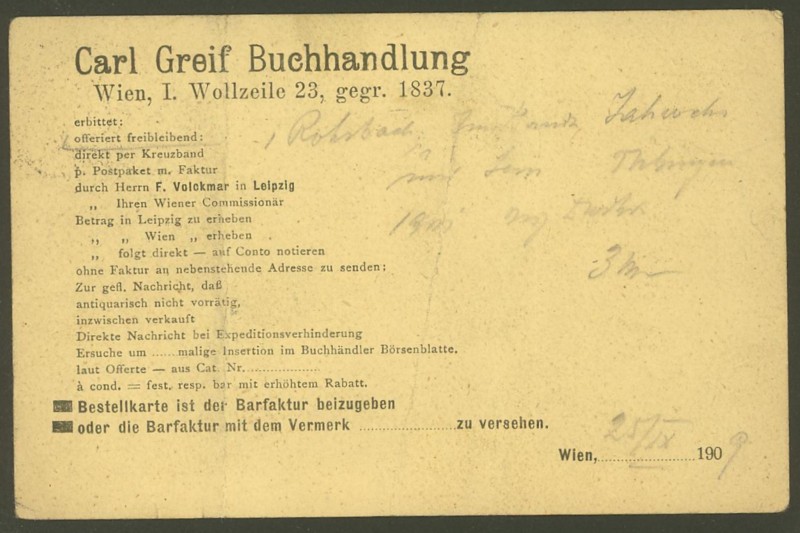 Carl Greif Buchhandlung
Wien, I. Wollzeile 23, gegr. 1837.
erbittet:
offeriert freibleibend:
direkt per Kreuzband
p. Postpaket m. Faktur
durch Herrn F. Volckmar in Leipzig
„ Ihren Wiener Commissionär
Betrag in Leipzig zu erheben
„ „ Wien „ erheben
„ folgt direkt — auf Conto notieren
ohne Faktur an nebenstehende Adresse zu senden:
Zur gefl. Nachricht, daß
antiquarisch nicht vorrätig,
inzwischen verkauft
Direkte Nachricht bei Expeditionsverhinderung
Ersuche um ......malige Insertion im Buchhändler Börsenblatte.
laut Offerte — aus Cat. Nr....................
à cond. = fest. resp. bar mit erhöhtem Rabatt.
Bestellkarte ist der Barfaktur beizugeben
oder die Barfaktur mit dem Vermerk ....................zu versehen.
1 Rohrbach
3
Wien, 25/IX 1909